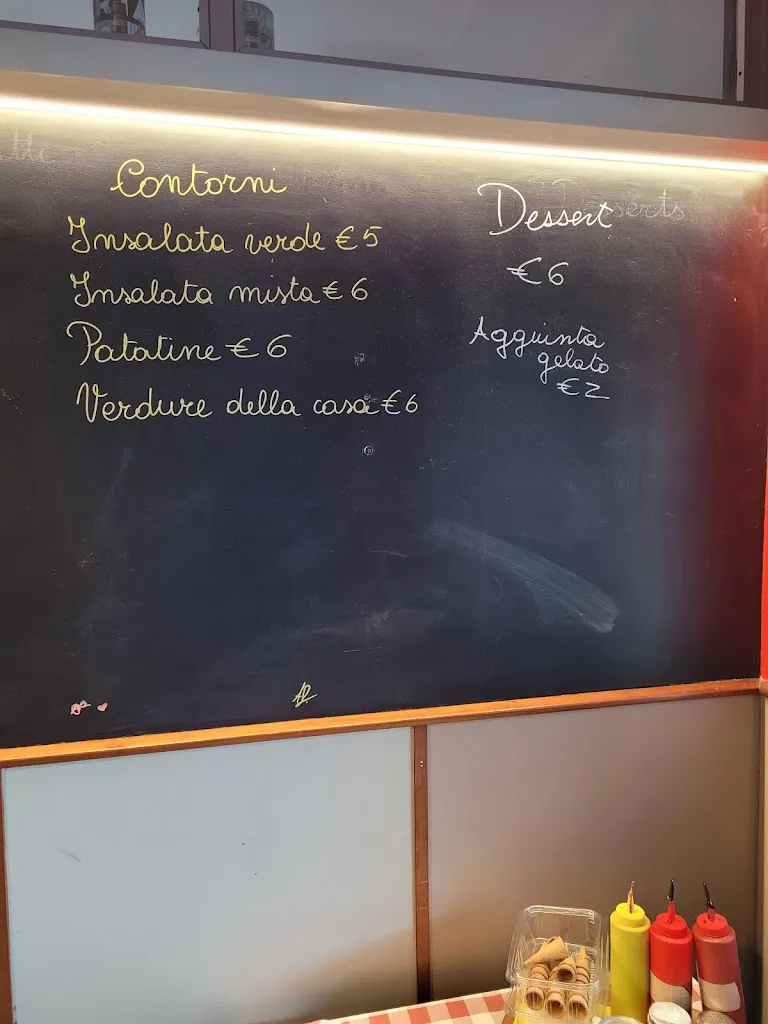 Contorni
Insalata verde € 5
Insalata mista € 6
Patatine € 6
Verdure della casa € 6
Dessert
€ 6
Aggiunta
gelato
€ 2